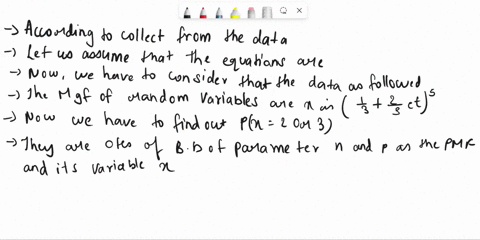 → According to collect from the data
→ Let us assume that the equations are
→ Now, we have to consider that the data as followed
→ The Mgf of random variables are x is (1/3 + 2/3 et)^5
→ Now we have to find out P(x = 2 or 3)
→ They are of B.D of parameter n and p as the PMF
and its variable x